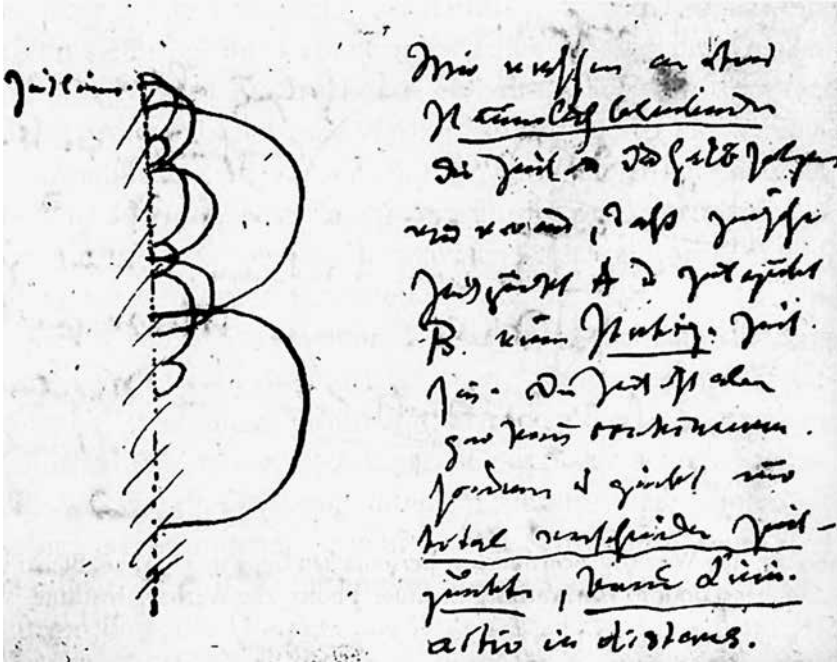 Zeitlinie.
Wir messen an etwas
Räumlich bleibendem
die Zeit u deshalb setzen
wir voraus, daß zwischen
Zeitpunkt A u Zeitpunkt
B eine stetige Zeit
sei. Die Zeit ist aber
gar kein continuum.
sondern es giebt nur
total verschiedene Zeit-
punkte, keine Linie.
actio in distans.